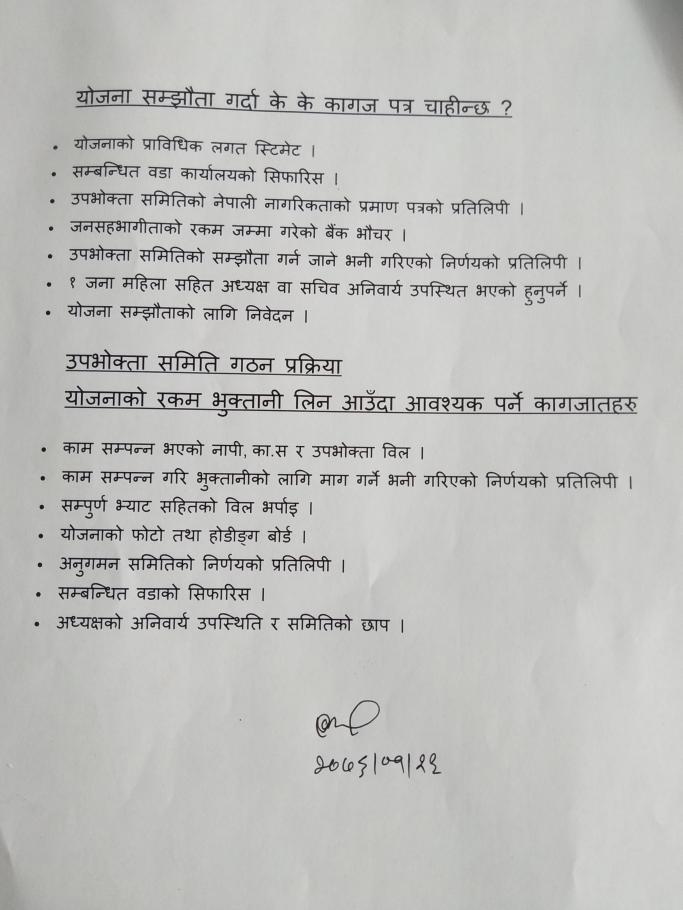 योजना सम्झौता गर्दा के के कागज पत्र चाहीन्छ ?
• योजनाको प्राविधिक लगत स्टिमेट ।
• सम्बन्धित वडा कार्यालयको सिफारिस ।
• उपभोक्ता समितिको नेपाली नागरिकताको प्रमाण पत्रको प्रतिलिपी ।
• जनसहभागीताको रकम जम्मा गरेको बैंक भौचर ।
• उपभोक्ता समितिको सम्झौता गर्न जाने भनी गरिएको निर्णयको प्रतिलिपी ।
• १ जना महिला सहित अध्यक्ष वा सचिव अनिवार्य उपस्थित भएको हुनुपर्ने ।
• योजना सम्झौताको लागि निवेदन ।
उपभोक्ता समिति गठन प्रक्रिया
योजनाको रकम भुक्तानी लिन आउँदा आवश्यक पर्ने कागजातहरु
• काम सम्पन्न भएको नापी, का.स र उपभोक्ता विल ।
• काम सम्पन्न गरि भुक्तानीको लागि माग गर्ने भनी गरिएको निर्णयको प्रतिलिपी ।
• सम्पुर्ण भ्याट सहितको विल भर्पाइ ।
• योजनाको फोटो तथा होडीङ्ग बोर्ड ।
• अनुगमन समितिको निर्णयको प्रतिलिपी ।
• सम्बन्धित वडाको सिफारिस ।
• अध्यक्षको अनिवार्य उपस्थिति र समितिको छाप ।